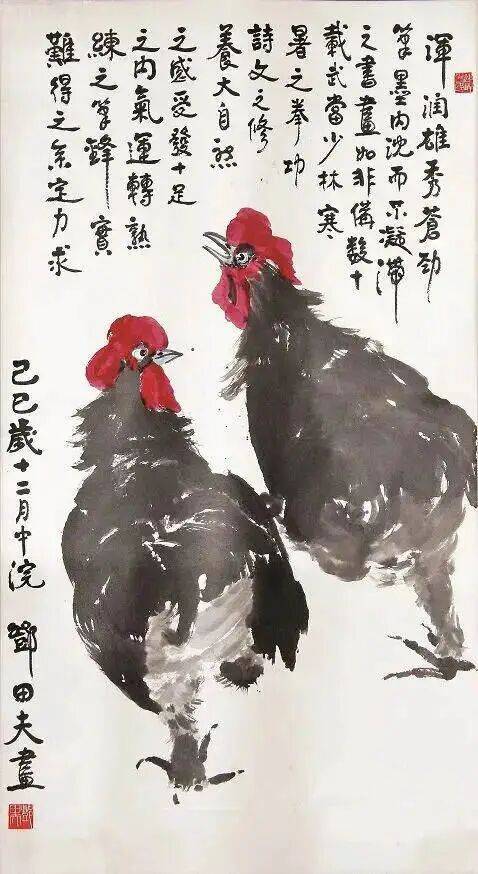 渾润雄秀蒼劲
筆墨内沈而不凝滞
之書畫如非備数十
載武當少林寒
暑之拳功
詩文之修
養大自然
之感受發十足
之内氣運轉熟
練之筆鋒實
難得之定力求
己巳歲十二月中浣 鄧田夫畫